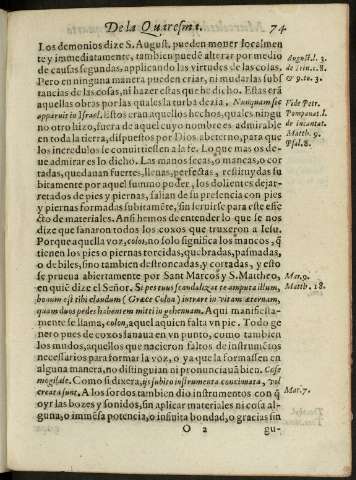 De la Quaresma.
74
Los demonios dize S. August. pueden mouer localmen
te y immediatamente, tambien puedē alterar por medio
de causas segundas, applicando las virtudes de las colas.
Pero en ninguna manera pueden criar, ni mudar las subs
tancias de las cosas, ni hazer estas que he dicho. Estas erā
aquellas obras por las quales la turba dezia, Nunquam sic
apparuit in Israel. Estos eran aquellos hechos, quales ningu
no otro hizo, fuera de aquel cuyo nombre es admirable
en toda la tierra, dispuestos por Dios ab eterno, para que
los incredulos se conuirtiessen a la fe. Lo que mas os de-
ue admirar es lo dicho. Las manos secas, o mancas, o cor
tadas, quedauan fuertes, llenas, perfectas, restituydas su
bitamente por aquel summo poder, los dolientes dejar-
retados de pies y piernas, salian de su presencia con pies
y piernas formadas subitamēte, sin seruirse para este effe
cto de materiales. Ansi hemos de entender lo que se nos
dize que sanaron todos los coxos que truxeron a Iesu.
Porque aquella voz, colon, no solo significa los mancos, q̃
tienen los pies o piernas torcidas, quebradas, pasmadas,
o debiles, sino tambien destroncadas, y cortadas, y esto
se prueua abiertamente por Sant Marcos y S. Mattheo,
en quiē dize el Señor. Si pes tuus scandalizat te amputa illum,
bonum est tibi claudum (Græce Colon) intrare in vitam æternam,
quam duos pedes habentem mitti in gehennam. Aqui manifiesta-
mente se llama, colon, aquel a quien falta vn pie. Todo ge
nero pues de coxos sanaua en vn punto, como tambien
los mudos, aquellos que nacieron faltos de instrumētos
necessarios para formar la voz, o ya que la formassen en
alguna manera, no distinguian ni pronunciauā bien. Cose
mogilale. Como si dixera, ijs subito instrumenta consumata, vel
creata sunt. A los sordos tambien dio instrumentos con q̃
oyr las bozes y sonidos, sin aplicar materiales ni cosa al-
guna, o immēsa potencia, o infinita bondad, o gracias sin
O 2
gu-
August. l. 3.
de Trin. c. 8.
& 9. to. 3.
Vide Petr.
Pompanat. l.
de incantat.
Matth. 9.
Psal. 8.
Mar. 9.
Matth. 18.
Mar. 7.